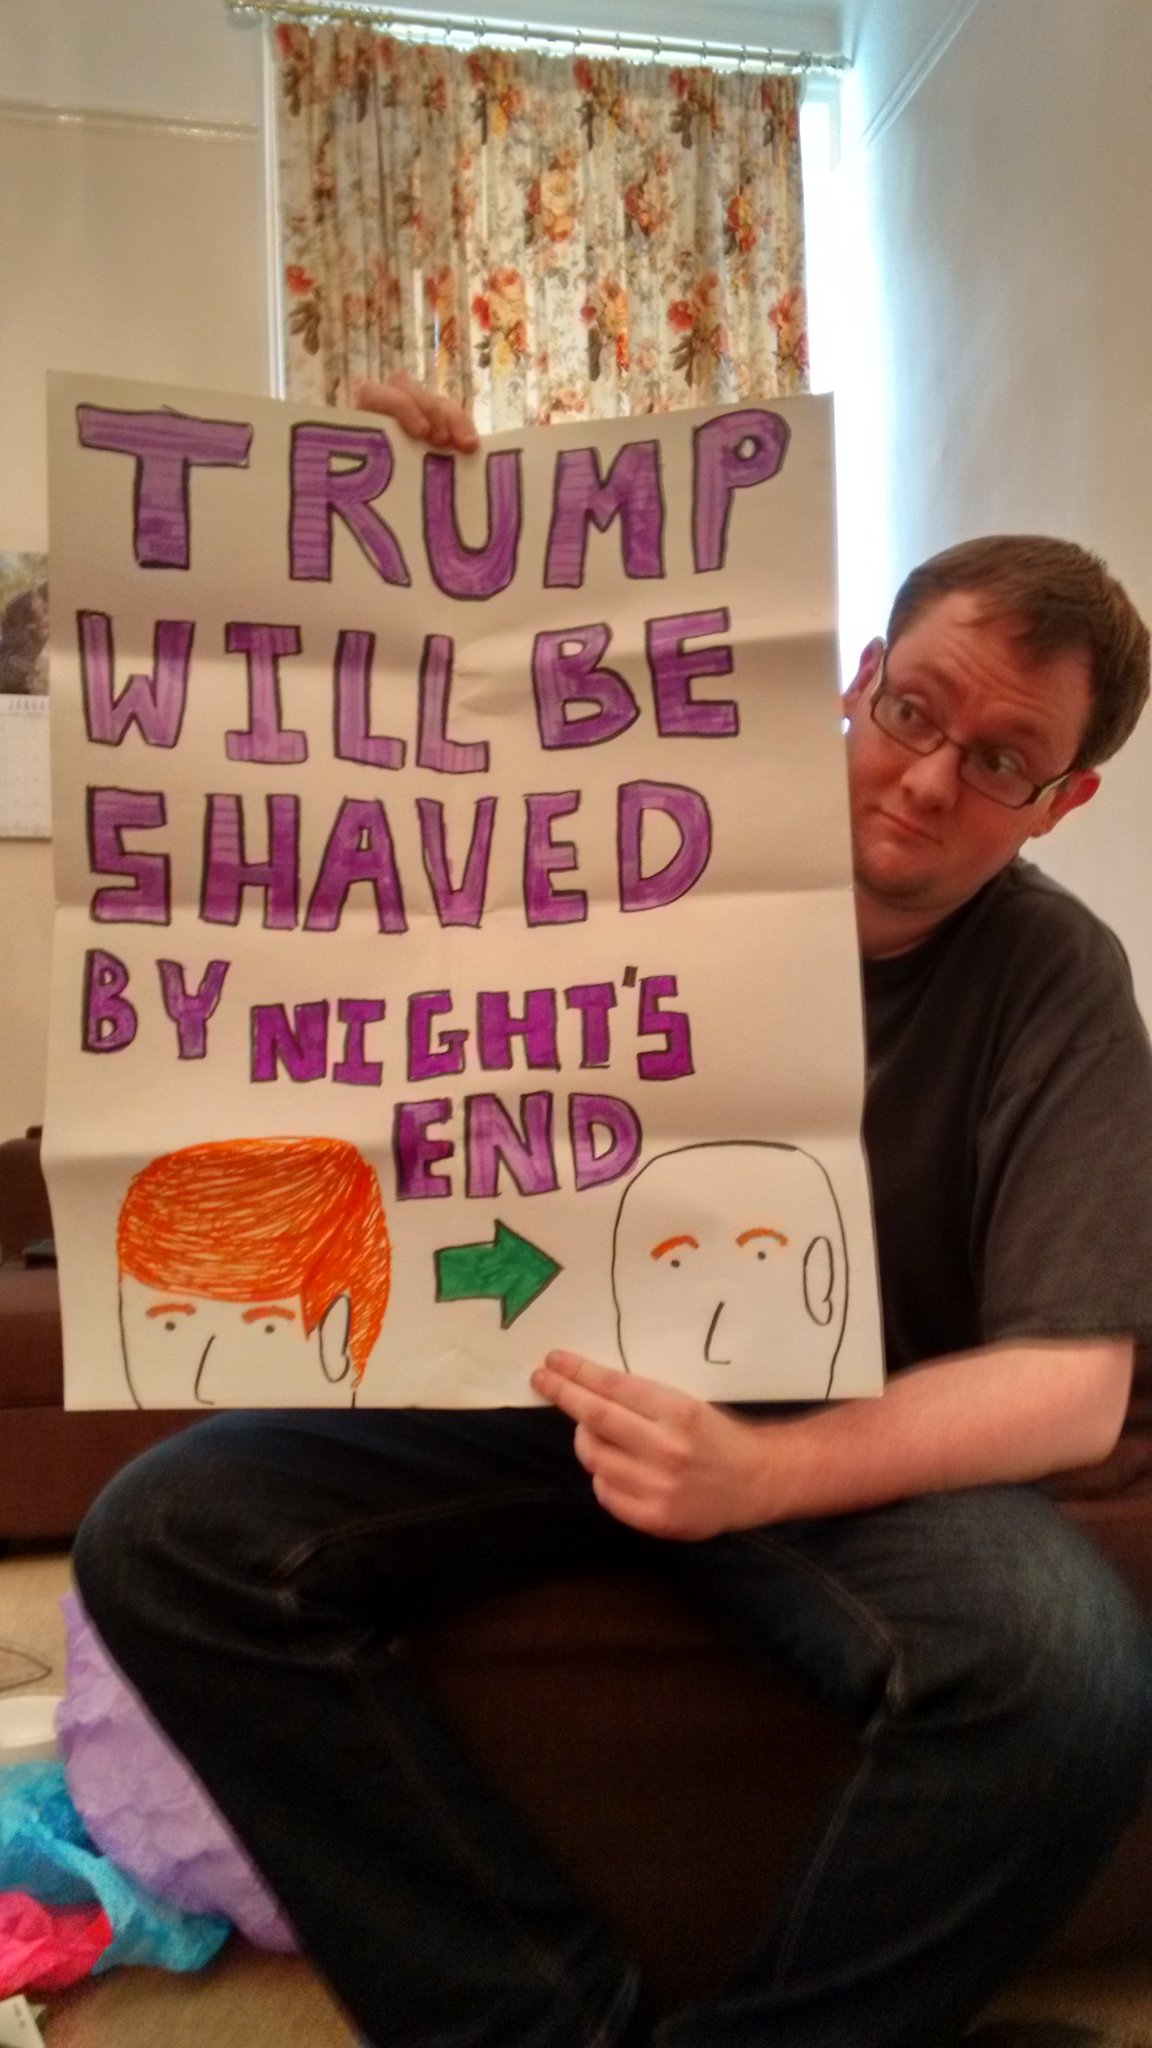 TRUMP
WILL BE
SHAVED
BY NIGHT'S
END